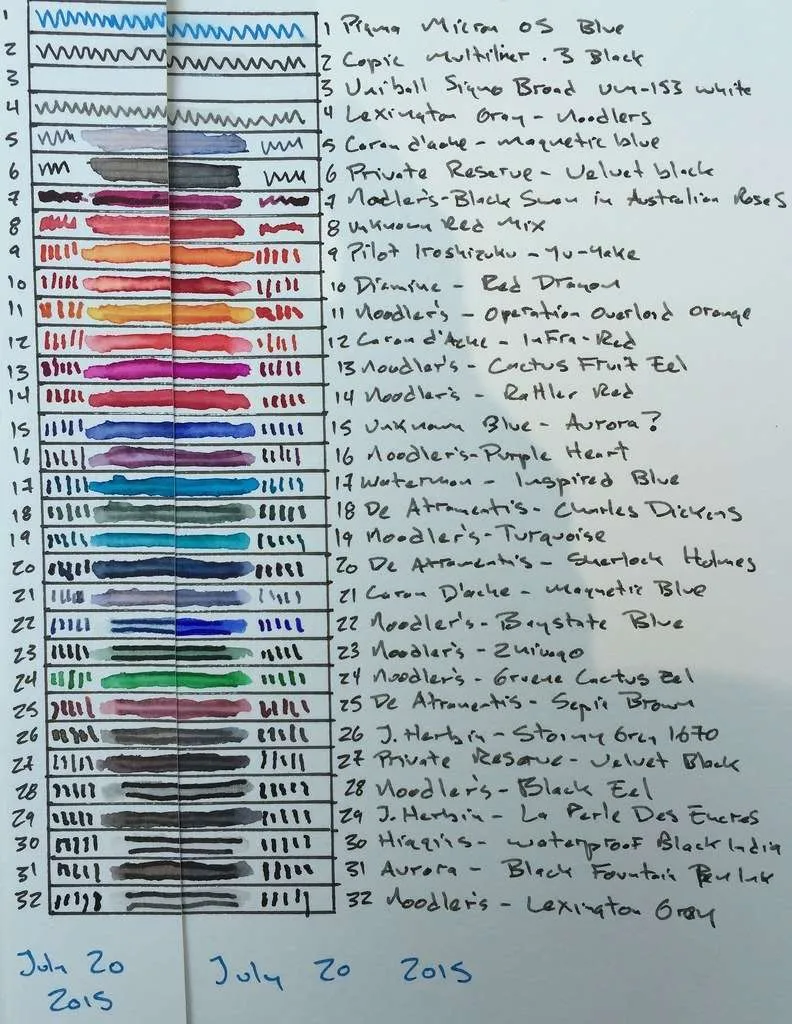 1 1 Pigma Micron 05 Blue
2 2 Copic Multiliner .3 Black
3 3 Uniball Signo Broad um-153 white
4 4 Lexington Gray - Noodlers
5 5 Caran d'ache - magnetic blue
6 6 Private Reserve - Velvet black
7 7 Noodler's - Black Swan in Australian Roses
8 8 Unknown Red Mix
9 9 Pilot Iroshizuku - Yu-Yake
10 10 Diamine - Red Dragon
11 11 Noodler's - Operation Overlord Orange
12 12 Caran d'Ache - InFra-Red
13 13 Noodler's - Cactus Fruit Eel
14 14 Noodler's - Rattler Red
15 15 Unknown Blue - Aurora?
16 16 Noodler's - Purple Heart
17 17 Waterman - Inspired Blue
18 18 De Atramentis - Charles Dickens
19 19 Noodler's - Turquoise
20 20 De Atramentis - Sherlock Holmes
21 21 Caran D'ache - Magnetic Blue
22 22 Noodler's - Baystate Blue
23 23 Noodler's - Zhivago
24 24 Noodler's - Gruene Cactus Eel
25 25 De Atramentis - Sepia Brown
26 26 J. Herbin - Stormy Grey 1670
27 27 Private Reserve - Velvet Black
28 28 Noodler's - Black Eel
29 29 J. Herbin - La Perle Des Encres
30 30 Higgins - waterproof Black India
31 31 Aurora - Black Fountain Pen Ink
32 32 Noodler's - Lexington Gray
July 20
2015
July 20 2015